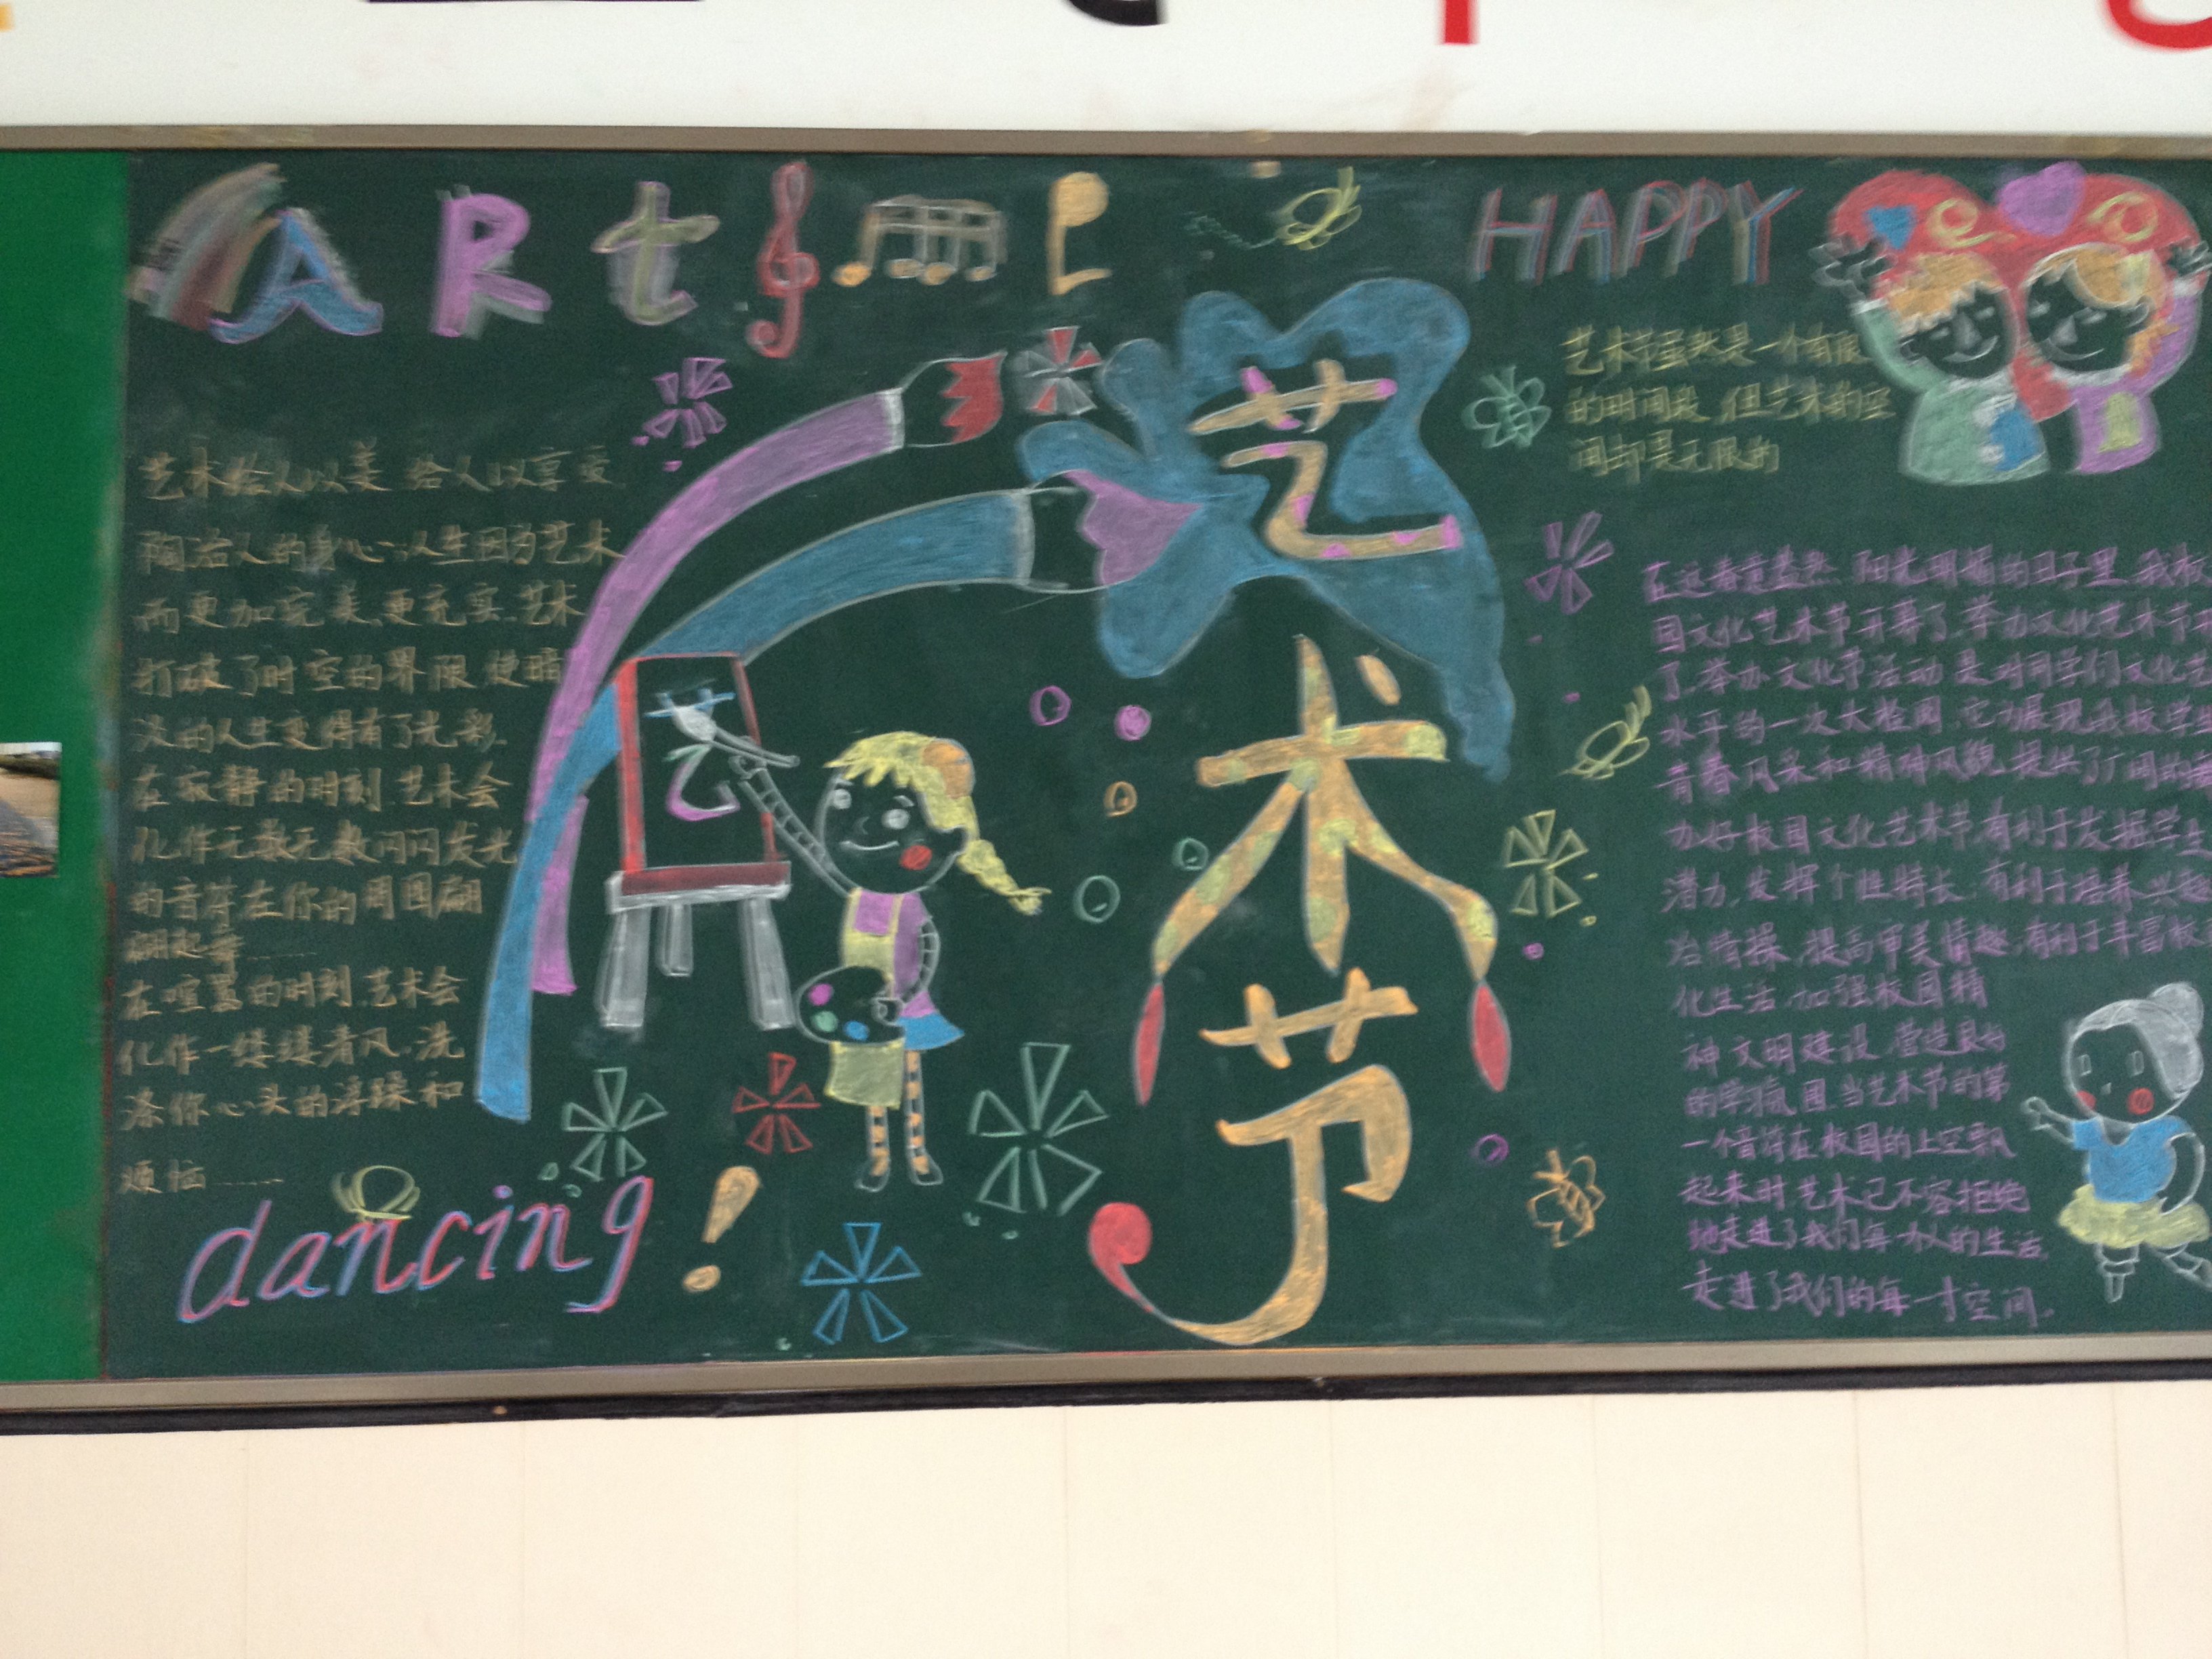 ARt
HAPPY
艺术节虽然是一个有限
的时间段,但艺术的空
间却是无限的
艺术给人以美 给人以享受
陶冶人的身心:人生因为艺术
而更加完美,更充实.艺术
打破了时空的界限,使暗
淡的人生变得有了光彩.
在寂静的时刻.艺术会
化作无数无数闪闪发光
的音符在你的周围翩
翩起舞……
在喧嚣的时刻.艺术会
化作一缕缕清风.洗
涤你心头的浮躁和
烦恼……
dancing!
艺
艺
术
节
在这春意盎然,阳光明媚的日子里,我校
园文化艺术节开幕了.举办文化艺术节
了.举办文化节活动 是对同学们文化
水平的一次大检阅.它为展现我校学生
青春风采和精神风貌.提供了广阔的
办好校园文化艺术节.有利于发掘学生
潜力.发挥个性特长.有利于培养兴趣
冶情操.提高审美情趣,有利于丰富校
化生活.加强校园精
神文明建设.营造良好
的学习氛围.当艺术节的第
一个音符在校园的上空飘
起来时.艺术已不容拒绝
地走进了我们每一个人的生活.
走进了我们的每一寸空间.